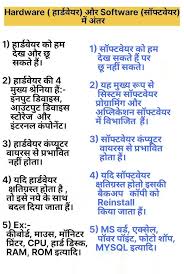 Hardware ( हार्डवेयर) और Software (सॉफ्टवेयर)
में अंतर
1) हार्डवेयर को हम
देख और छू
सकते हैं।
2) हार्डवेयर की 4
मुख्य श्रेनिया हैं:-
इनपुट डिवाइस,
आउटपुट डिवाइस
स्टोरेज और
इंटरनल कंपोनेंट।
3) हार्डवेयर कंप्यूटर
वायरस से प्रभावित
नहीं होता।
4) यदि हार्डवेयर
क्षतिग्रस्त होता है ,
तो इसे नये के साथ
बदल दिया जाता है।
5) Ex:-
कीबोर्ड, माउस, मॉनिटर
प्रिंटर, CPU, हार्ड डिस्क,
RAM, ROM इत्यादि।
1) सॉफ्टवेयर को हम
देख सकते हैं पर
छू नहीं सकते।
2) यह मुख्य रूप से
सिस्टम सॉफ्टवेयर
प्रोग्रामिंग और
अप्लिकेशन सॉफ्टवेयर
में विभाजित हैं।
3) सॉफ्टवेयर कंप्यूटर
वायरस से प्रभावित
होता हैं।
4) यदि सॉफ्टवेयर
क्षतिग्रस्त होतो इसकी
बैकअप कॉपी को
Reinstall
किया जाता हैं।
5) MS वर्ड, एक्सेल,
पॉवर पॉइंट, फोटो शॉप,
MYSQL इत्यादि।